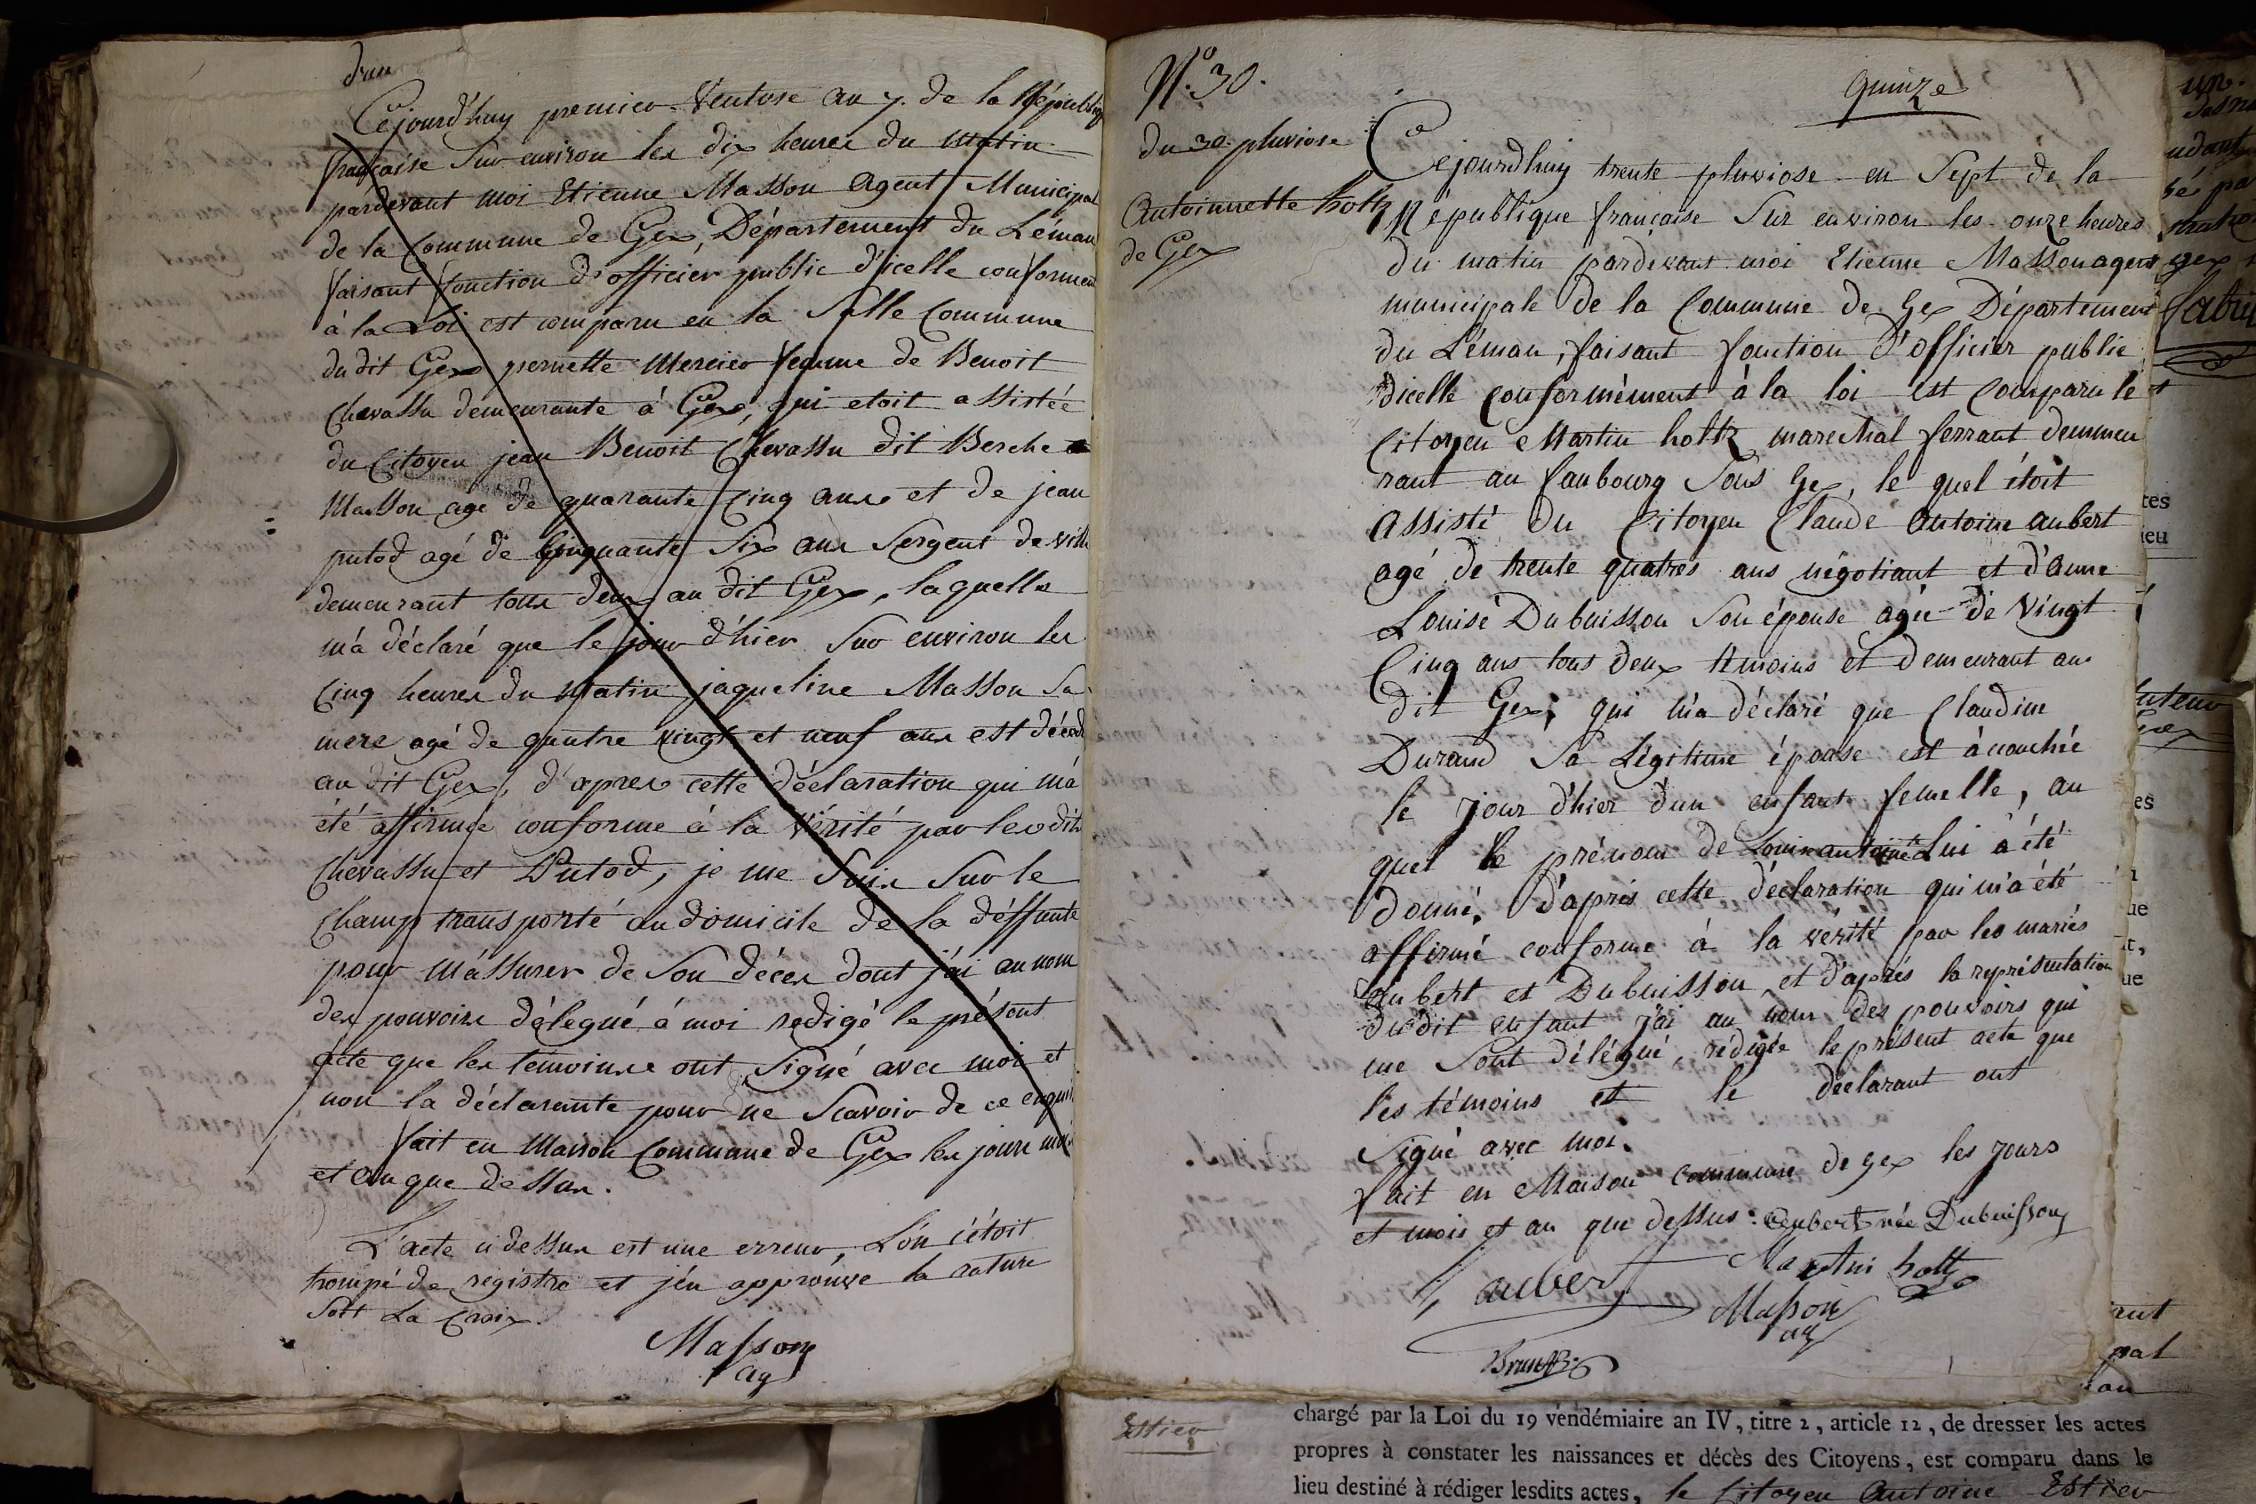 Cejourd'huy premier Ventose an 7. de la Républiq
française Sur environ les dix heures du matin
pardevant moi Etienne Masson Agent Municipal
de la Commune de Gex, Département du Léman
faisant fonction d'officier public d'icelle conformem
à la Loi est comparu en la Salle Commune
du dit Gex pernette Mercier femme de Benoit
Chevassu demeurante à Gex, qui etoit assistée
du Citoyen jean Benoit Chevassu dit Berche
Masson agé de quarante Cinq ans et de jean
putod agé de Cinquante Six ans Sergent de ville
demeurant tous deux au dit Gex, laquelle
m'a déclaré que le jour d'hier Sur environ les
Cinq heures du matin jaqueline Masson Sa
mere agé de quatre vingt et neuf ans est décéd
au dit Gex, d'apres cette déclaration qui m'a
été affirmée conforme à la Vérité par lesdits
Chevassu et Putod, je me Suis Sur le
Champ transporté au domicile de la déffunte
pour m'assurer de Son décès dont j'ai au nom
des pouvoirs délegué à moi redigé le présent
acte que les temoins ont Signé avec moi et
non la déclarante pour ne Scavoir de ce enquis
fait en Maison Commune de Gex les jours mois
et an que dessus.
L'acte ci dessus est une erreur, L'on s'étoit
trompé de registre et j'en approuve la rature
Soit La Croix.
Masson
ag
N.° 30.
quinze
du 30. pluviose
Antoinette holtz
de Gex
Cejourdhuy trente pluviose en Sept de la
République française Sur environ les onze heures
du matin pardevant moi Etienne Masson agent
municipale de la Commune de Gex Département
du Léman, faisant fonction d'officier public
dicelle Conformément à la loi est Comparu le
Citoyen Martin holtz marechal ferrant demmeu
rant au faubourg Sous Gex, le quel étoit
assisté du Citoyen Claude antoine aubert
agé de trente quatres ans négotiant et d'anne
Louise Dubuisson Son épouse agée de Vingt
Cinq ans tous deux témoins et demeurant au
dit Gex, qui m'a déclaré que Claudine
Durand Sa Légitime épouse est àcouchée
le jour d'hier d'un enfant femelle, au
quel le prénom de Louise antoinette Lui a été
donné, D'après cette déclaration qui m'a été
affirmé conforme à la vérité par les mariés
aubert et Dubuisson, et d'après la représentation
du dit enfant j'ai au nom des pouvoirs qui
me Sont délégué, rédigée le présent acte que
les témoins et le déclarant ont
Signé avec moi.
fait en Maison commune de gex les jours
et mois et an que dessus. Aubert née Dubuisson
aubert
Martin holtz
Masson
ag
Estier
chargé par la Loi du 19 vendémiaire an IV, titre 2, article 12, de dresser les actes
propres à constater les naissances et décès des Citoyens, est comparu dans le
lieu destiné à rédiger lesdits actes, le Citoyen Antoine Estier